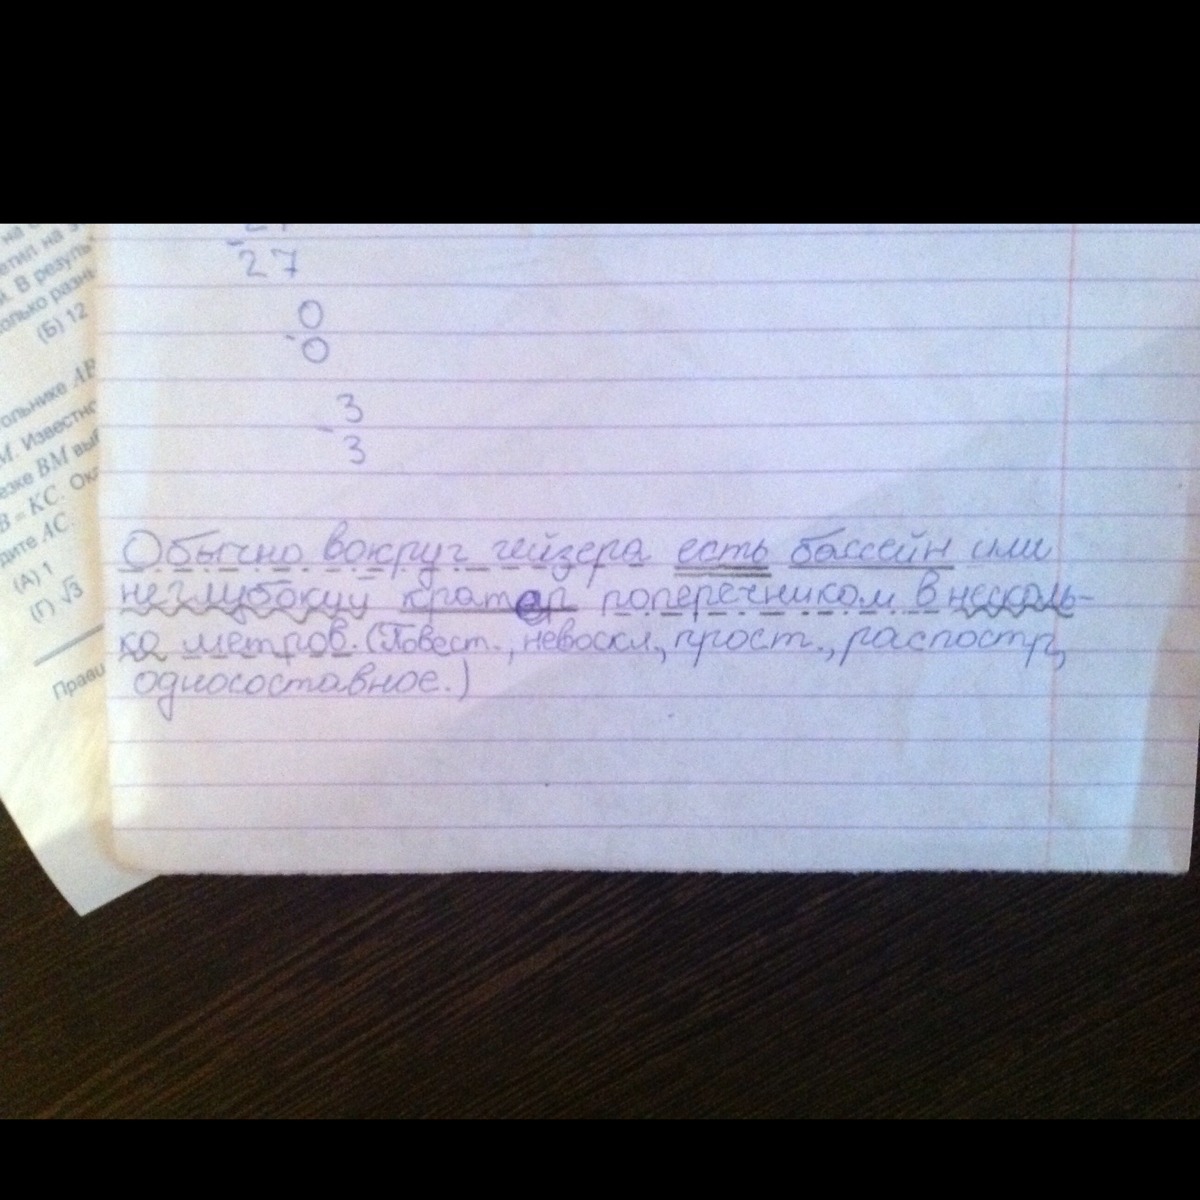 на
етил на 3
. В резуль
олько разн
(Б) 12
ольнике АВ
М. Известно
езке ВМ выб
В = КС. Ока
дите АС.
(А) 1
(Г) √3
Прави
27
0
- 0
- 3
3
Обычно вокруг гейзера есть бассейн или
неглубокий кратер поперечником в несколь-
ко метров. (Повест., невоскл., прост., распостр,
односоставное.)